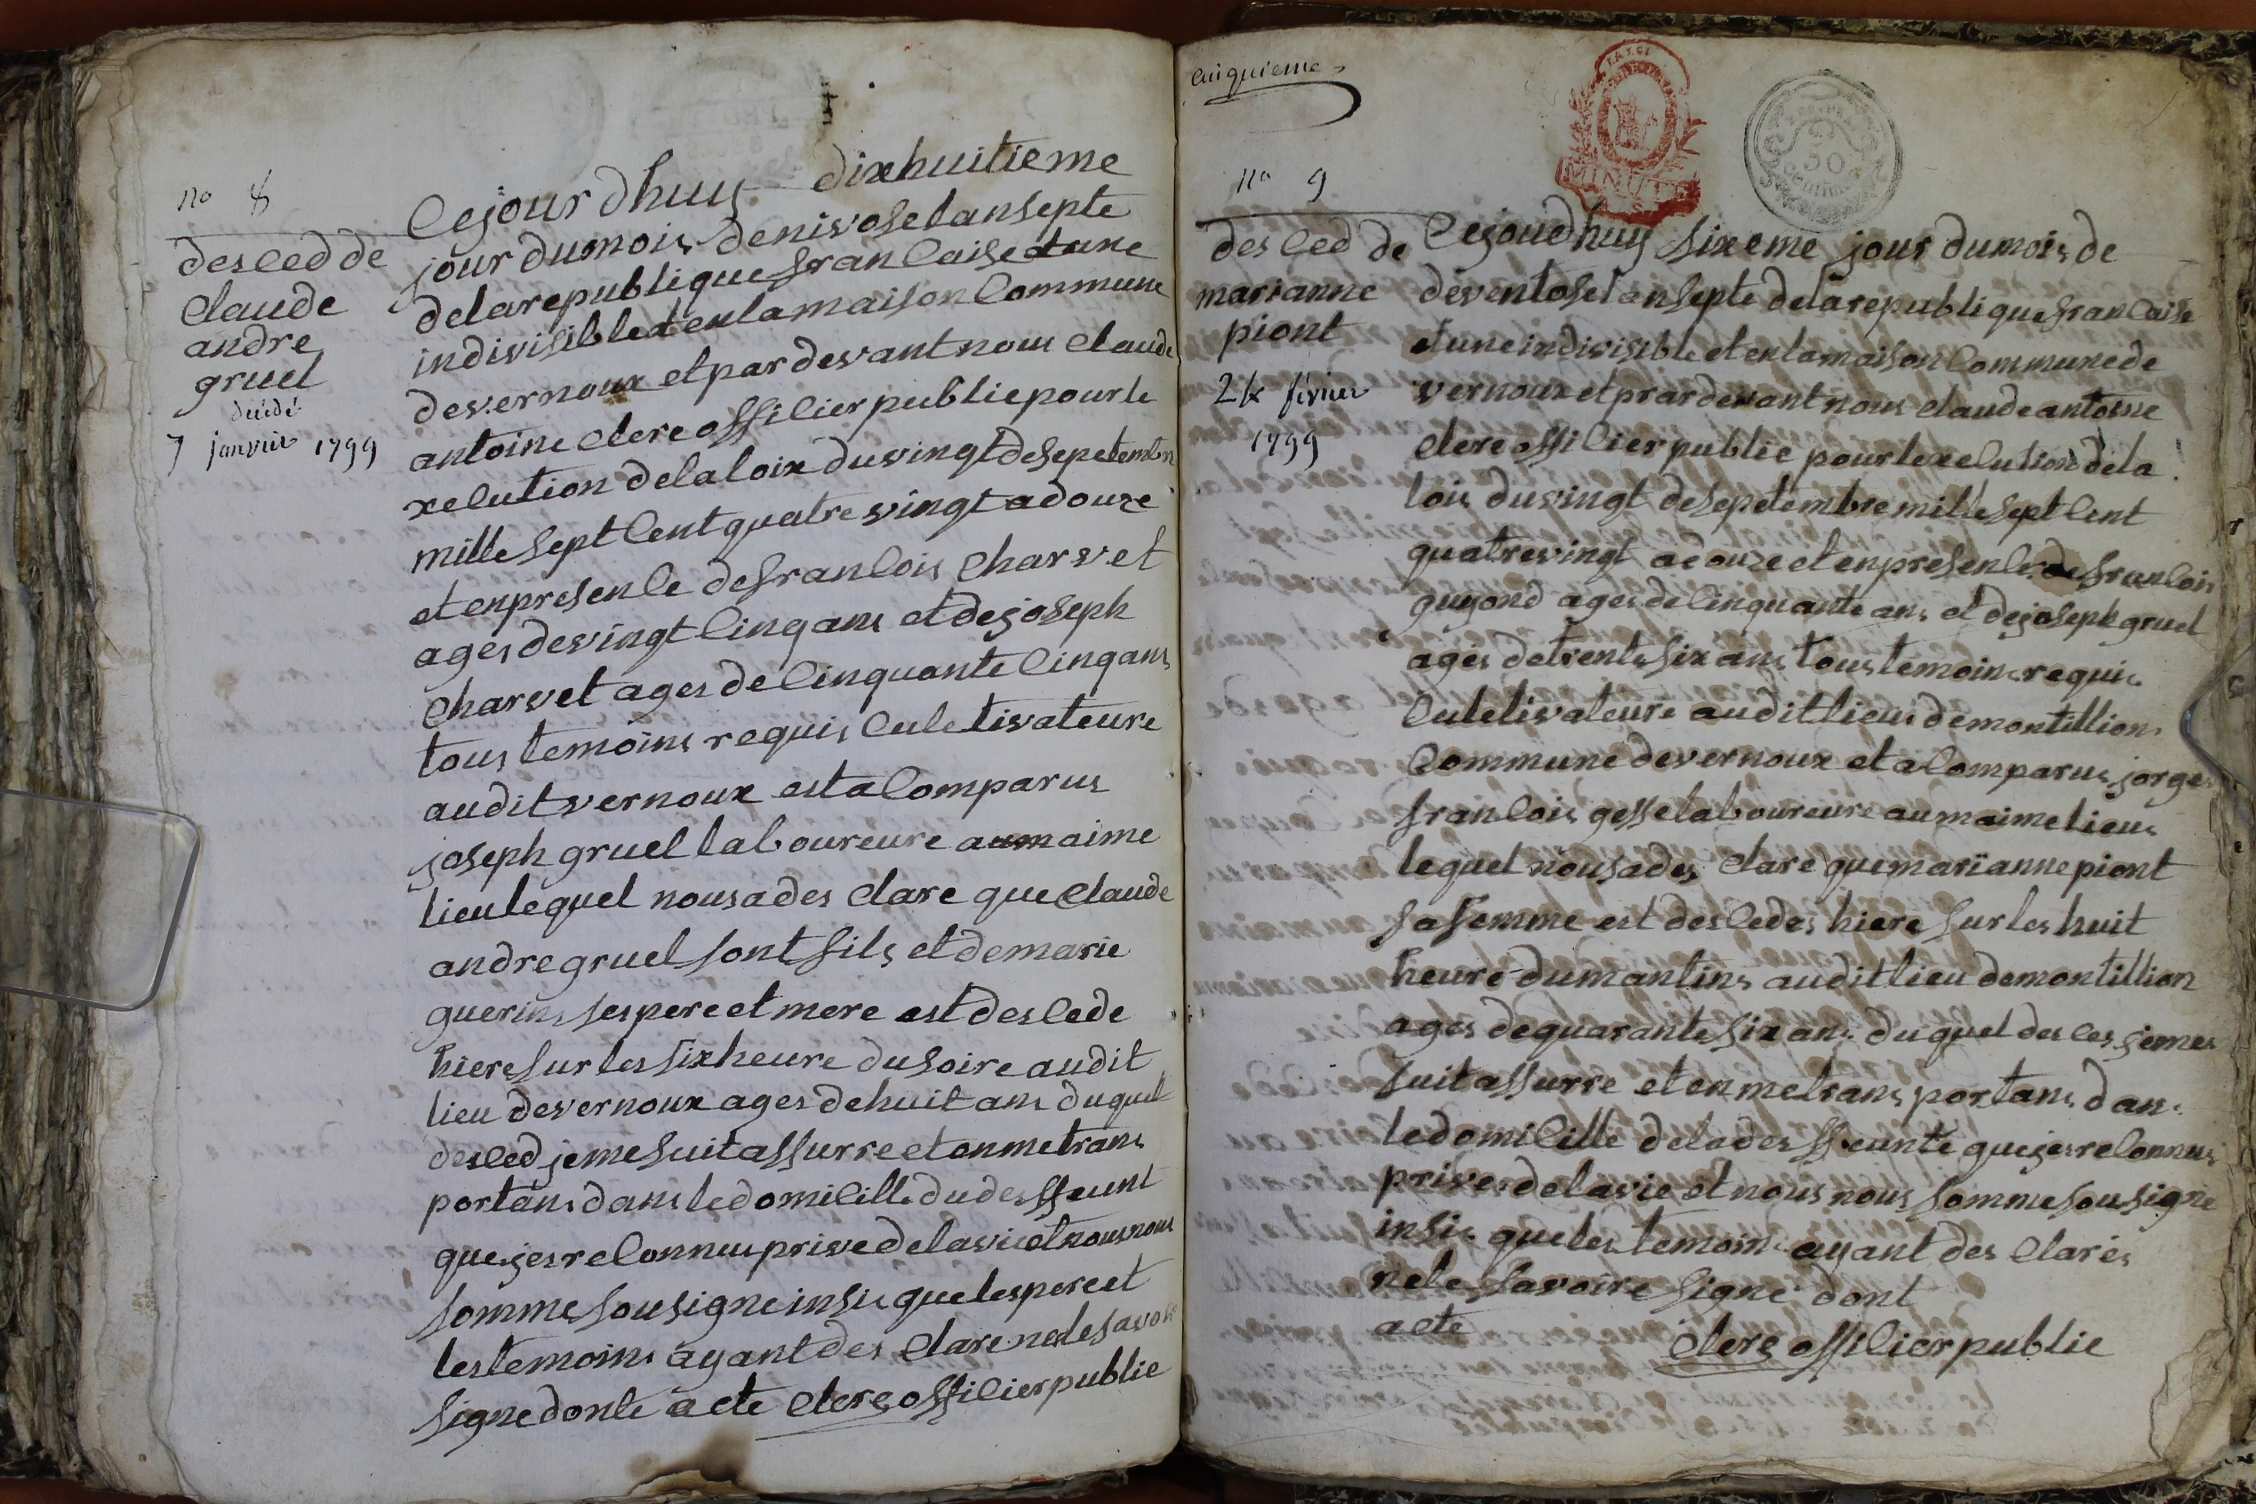 no 8
desced de
Claude
andre
gruel
décédé
7 janvier 1799
Cejour dhuy dixhuitieme
jour dumois denivose lansepte
delarepublique francaise etune
indivisible et enlamaison Commune
devernoux et pardevant nous Claude
antoine Clerc officier public pour le
xecution delaloix du vingt de sepetembre
mille sept Cent quatre vingt adouze
et enpresence defrancois Charvet
ages devingt Cinq ans et de joseph
Charvet ages de Cinquante Cinq ans
tous temoins requis Culetivateure
audit vernoux est a Comparus
joseph gruel laboureure au maime
lieu lequel nous a des Clare que Claude
andre gruel sont fils et de marie
guerins ses pere et mere est descede
hiere sur les six heure du soire audit
lieu devernoux ages de huit ans duquel
desced je me suit assurre et en me trans
portans dans le domicille du deffeunt
que jes reconnus prive de la vie et nous nous
somme sousigne insis que les pere et
les temoins ayant des Clare ne le savoire
signe donte acte Clerc officier public
Cinquieme
MINUTE
50
Centimes
no 9
desced de
marianne
piont
24 février
1799
Cejoudhuy sixeme jour dumois de
deventose lansepte delarepublique francaise
etune indivisible et enlamaison Commune de
vernoux et prardevant nous Claude antoine
Clerc officier public pour lexecution dela
lois duvingt desepetembre mille sept Cent
quatrevingt adouze et enpresence de francois
guyond ages de Cinquante ans et de joseph gruel
ages detrente six ans tous temoins requis
Culetivateure audit lieus de montillion
Commune devernoux et a Comparus jorge
francois gesse laboureure au maime lieus
lequel nous a des Clare que marianne piont
sa femme est descedes hiere sur les huit
heure dumantins audit lieu demontillion
ages dequarante six ans duquel desces jemes
suit assurre et en metrans portans dans
le domicille de la deffeunte que jes reconnus
prives de la vie et nous nous somme sousigne
insis que les temoins ayant des Clarés
nele savoire signé dont
acte
Clerc officier public